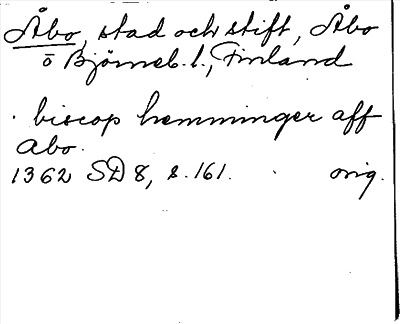 Åbo, stad och stift, Åbo
o Björneb. l., Finland
biscop hemminger aff
abo.
1362 SD 8, s. 161. orig.